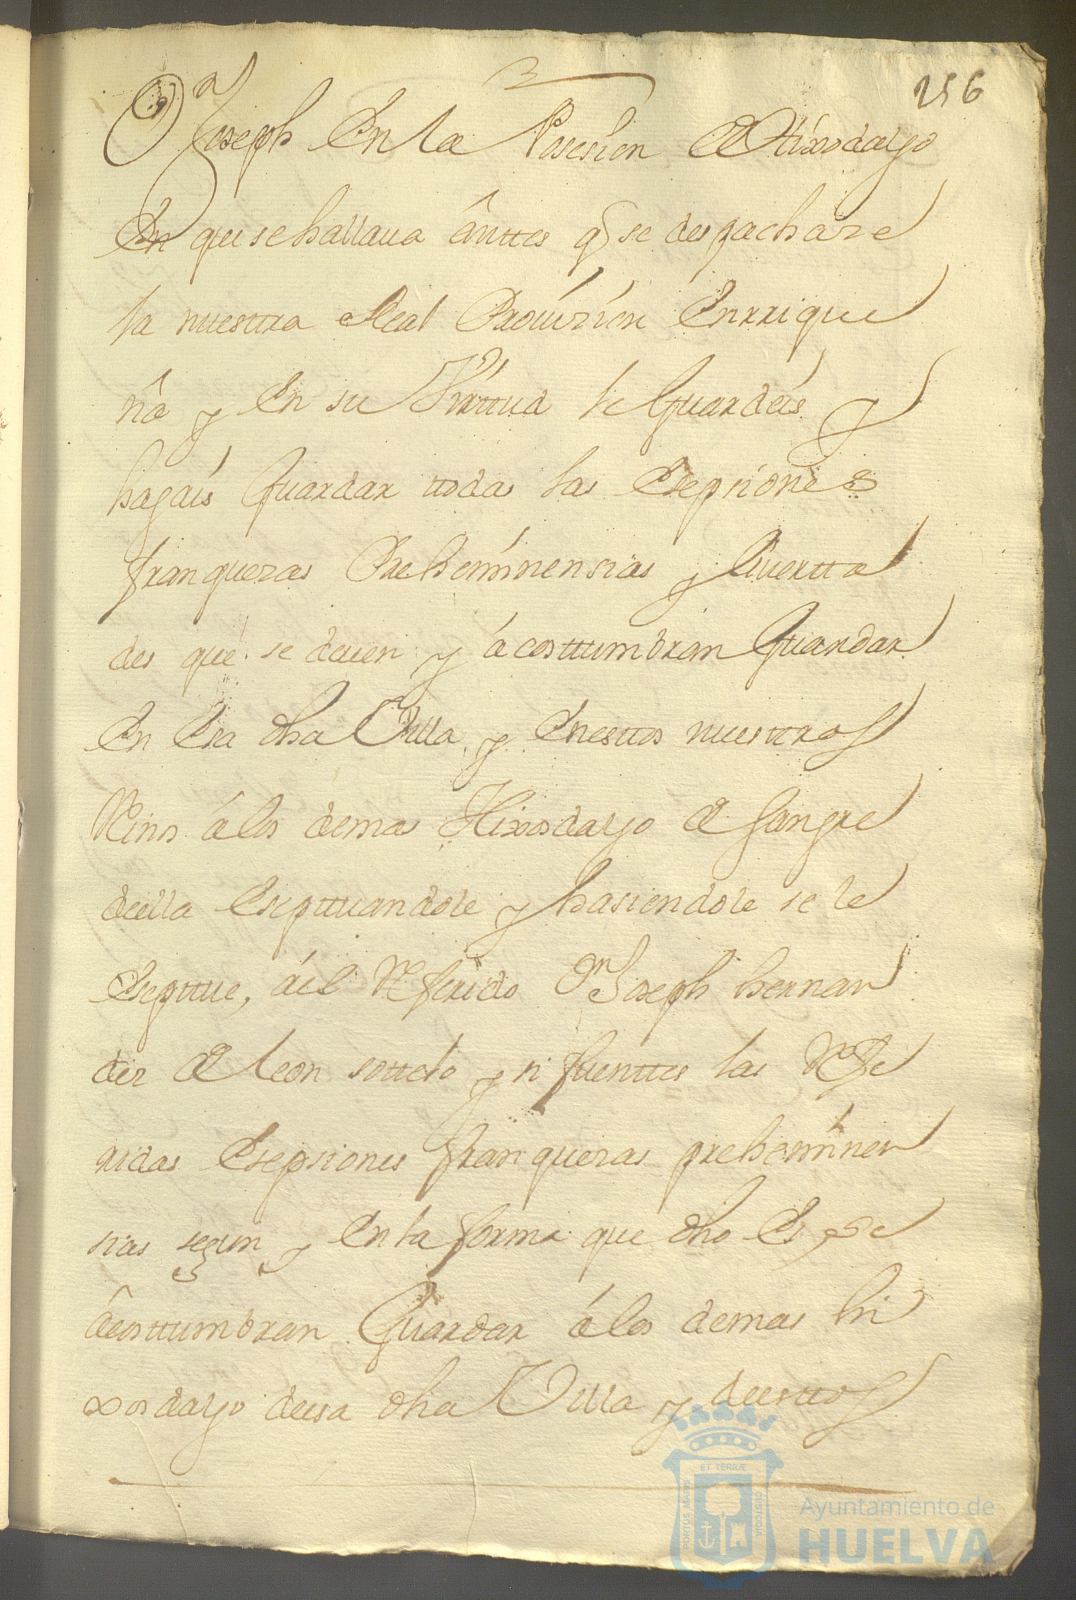 256
Dn Joseph En la Posesion de Hixodalgo
En que se hallaua ânttes q se despachase
la nuesttra Real Prouizion Enrrique
ña y En su Virttud le Guardeis y
hagais Guardar ttodas las Esepsiones
franquezas Prehéminensias y liuertta
des que se deuen y âcosttumbran Guardar
En Esa dha Villa y Enesttos nuesttros
Reinos álos demas Hixosdalgo de Sangre
deella Eseptuandole y hasiendole se le
Eseptue, ael Referido Dn Joseph hernan
dez de leon sottelo y n fuenttes las Refe
ridas Esepsiones franquezas prehéminen
sias segun y En la forma que dho Es y se
âcosttumbran Guardar álos demas hi
xosdalgo deesa dha Villa y deesttos
PORTUS MARIS
ET TERRÆ
CUSTODIA
Ayuntamiento de
HUELVA